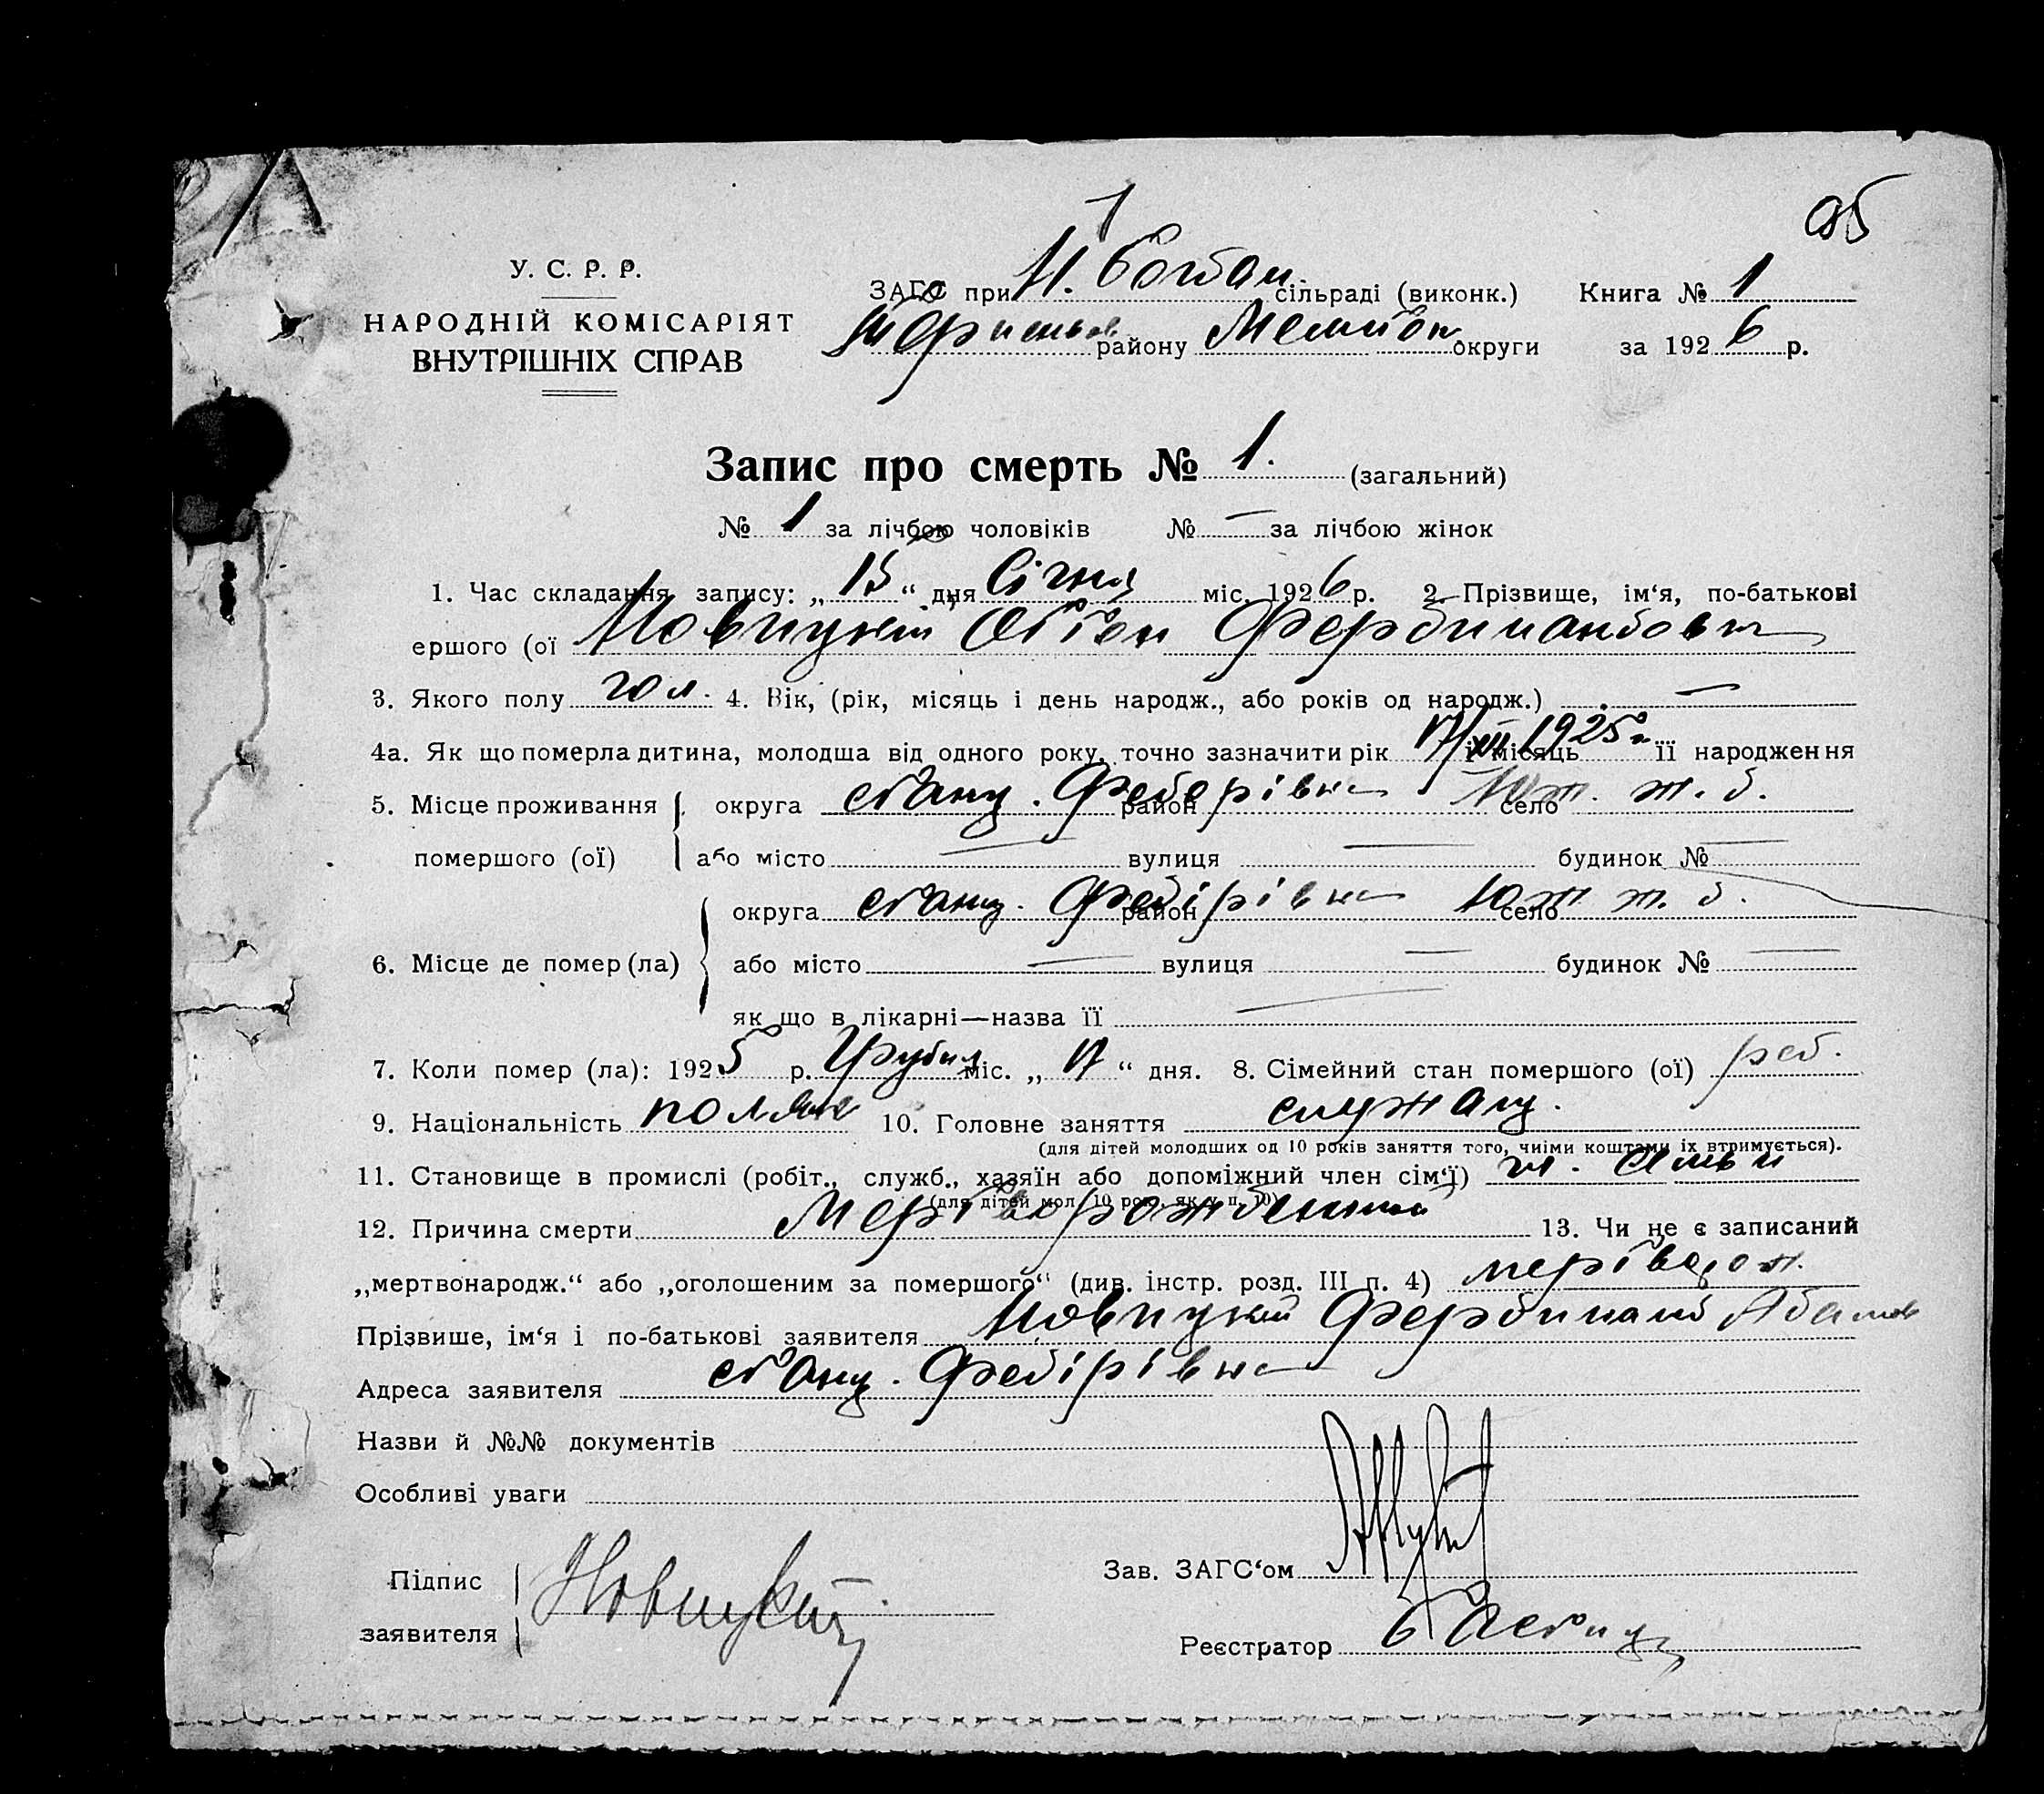 1
У. С. Р. Р.
НАРОДНІЙ КОМІСАРІЯТ
ВНУТРІШНІХ СПРАВ
ЗАГС при Н. Богдан. сільраді (виконк.) Книга № 1
району округи за 192 6 р.
Запис про смерть № 1. (загальний)
№ 1 за лічбою чоловіків № — за лічбою жінок
1. Час складання запису: „ 15 “ дня Січня міс. 192 6 р. 2. Прізвище, ім‘я, по-батькові
ершого (ої Новицкий Фердинандови
3. Якого полу чол. 4. Вік, (рік, місяць і день народж., або років од народж.) —
4а. Як що померла дитина, молодша від одного року, точно зазначити рік 17/XII 1925 і місяць її народження
5. Місце проживання округа станц. район Федорівка село Юж. ж. д.
помершого (ої) або місто — вулиця — будинок № —
округа станц. район Федірівка село Юж ж. д.
6. Місце де помер (ла) або місто — вулиця — будинок № —
як що в лікарні—назва її —
7. Коли помер (ла): 192 5 р. Грудня міс. „ 17 “ дня. 8. Сімейний стан помершого (ої) реб.
9. Національність поляк 10. Головне заняття служащ.
(для дітей молодших од 10 років заняття того, чиїми коштами їх втримується).
11. Становище в промислі (робіт., служб., хазяїн або допоміжний член сім‘ї) чл. семьи
(для дітей мол. 10 рок. як у п. 10)
12. Причина смерти Мертворожденный 13. Чи не є записаний
„мертвонародж.“ або „оголошеним за помершого“ (див. інстр. розд. III п. 4) мертворож.
Прізвище, ім‘я і по-батькові заявителя Новицкий Фердинанд Адамов
Адреса заявителя станц. Федірівка
Назви й №№ документів
Особливі уваги
Підпис
заявителя Новицкий
Зав. ЗАГС‘ом
Реєстратор